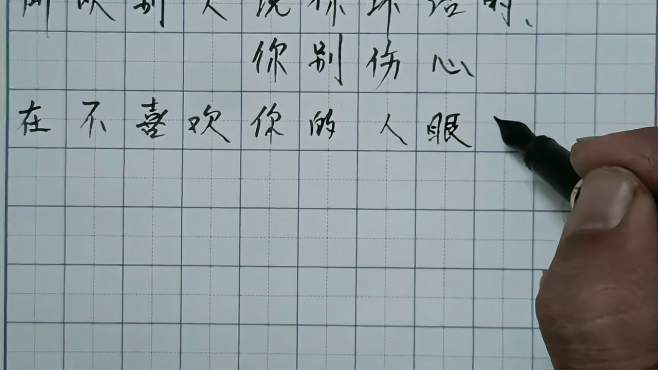 所以别人说你坏话时、
你别伤心
在不喜欢你的人眼